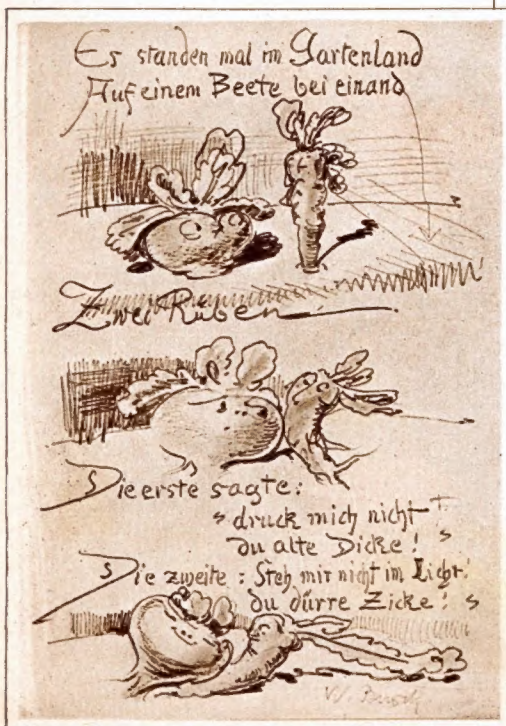 Es standen mal im Gartenland
Auf einem Beete bei einand
Zwei Rüben
Die erste sagte:
„druck mich nicht
du alte Dicke! "
Die zweite: Steh mir nicht im Licht!
du dürre Zicke! "
W. Busch